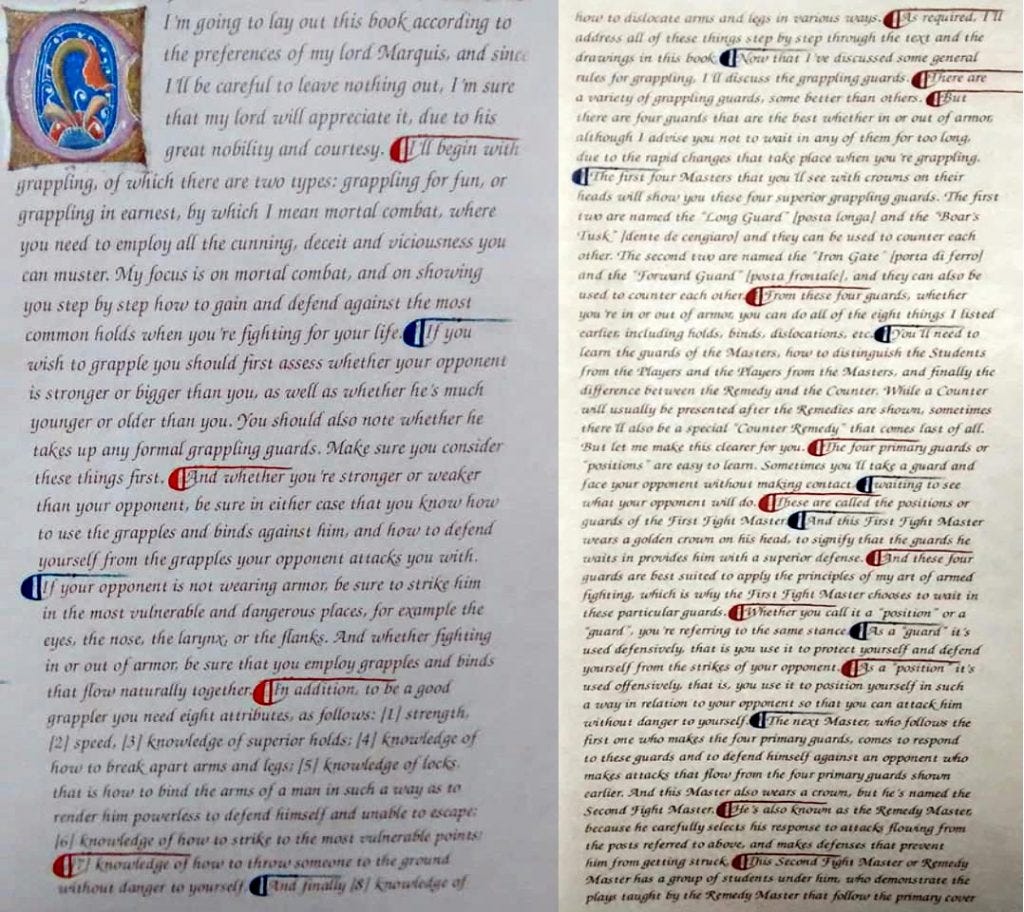 I'm going to lay out this book according to
the preferences of my lord Marquis, and since
I'll be careful to leave nothing out, I'm sure
that my lord will appreciate it, due to his
great nobility and courtesy. I'll begin with
grappling, of which there are two types: grappling for fun, or
grappling in earnest, by which I mean mortal combat, where
you need to employ all the cunning, deceit and viciousness you
can muster. My focus is on mortal combat, and on showing
you step by step how to gain and defend against the most
common holds when you're fighting for your life. If you
wish to grapple you should first assess whether your opponent
is stronger or bigger than you, as well as whether he's much
younger or older than you. You should also note whether he
takes up any formal grappling guards. Make sure you consider
these things first. And whether you're stronger or weaker
than your opponent, be sure in either case that you know how
to use the grapples and binds against him, and how to defend
yourself from the grapples your opponent attacks you with.
If your opponent is not wearing armor, be sure to strike him
in the most vulnerable and dangerous places, for example the
eyes, the nose, the larynx, or the flanks. And whether fighting
in or out of armor, be sure that you employ grapples and binds
that flow naturally together. In addition, to be a good
grappler you need eight attributes, as follows: [1] strength,
[2] speed, [3] knowledge of superior holds; [4] knowledge of
how to break apart arms and legs; [5] knowledge of locks,
that is how to bind the arms of a man in such a way as to
render him powerless to defend himself and unable to escape;
[6] knowledge of how to strike to the most vulnerable points;
[7] knowledge of how to throw someone to the ground
without danger to yourself. And finally [8] knowledge of
how to dislocate arms and legs in various ways. As required, I'll
address all of these things step by step through the text and the
drawings in this book. Now that I've discussed some general
rules for grappling, I'll discuss the grappling guards. There are
a variety of grappling guards, some better than others. But
there are four guards that are the best whether in or out of armor,
although I advise you not to wait in any of them for too long,
due to the rapid changes that take place when you're grappling.
The first four Masters that you'll see with crowns on their
heads will show you these four superior grappling guards. The first
two are named the "Long Guard" [posta longa] and the "Boar's
Tusk" [dente de cengiaro] and they can be used to counter each
other. The second two are named the "Iron Gate" [porta di ferro]
and the "Forward Guard" [posta frontale], and they can also be
used to counter each other. From these four guards, whether
you're in or out of armor, you can do all of the eight things I listed
earlier, including holds, binds, dislocations, etc. You'll need to
learn the guards of the Masters, how to distinguish the Students
from the Players and the Players from the Masters, and finally the
difference between the Remedy and the Counter. While a Counter
will usually be presented after the Remedies are shown, sometimes
there'll also be a special "Counter Remedy" that comes last of all.
But let me make this clearer for you. The four primary guards or
"positions" are easy to learn. Sometimes you'll take a guard and
face your opponent without making contact, waiting to see
what your opponent will do. These are called the positions or
guards of the First Fight Master. And this First Fight Master
wears a golden crown on his head, to signify that the guards he
waits in provides him with a superior defense. And these four
guards are best suited to apply the principles of my art of armed
fighting, which is why the First Fight Master chooses to wait in
these particular guards. Whether you call it a "position" or a
"guard", you're referring to the same stance. As a "guard" it's
used defensively, that is you use it to protect yourself and defend
yourself from the strikes of your opponent. As a "position" it's
used offensively, that is, you use it to position yourself in such
a way in relation to your opponent so that you can attack him
without danger to yourself. The next Master, who follows the
first one who makes the four primary guards, comes to respond
to these guards and to defend himself against an opponent who
makes attacks that flow from the four primary guards shown
earlier. And this Master also wears a crown, but he's named the
Second Fight Master. He's also known as the Remedy Master,
because he carefully selects his response to attacks flowing from
the posts referred to above, and makes defenses that prevent
him from getting struck. This Second Fight Master or Remedy
Master has a group of students under him, who demonstrate the
plays taught by the Remedy Master that follow the primary cover